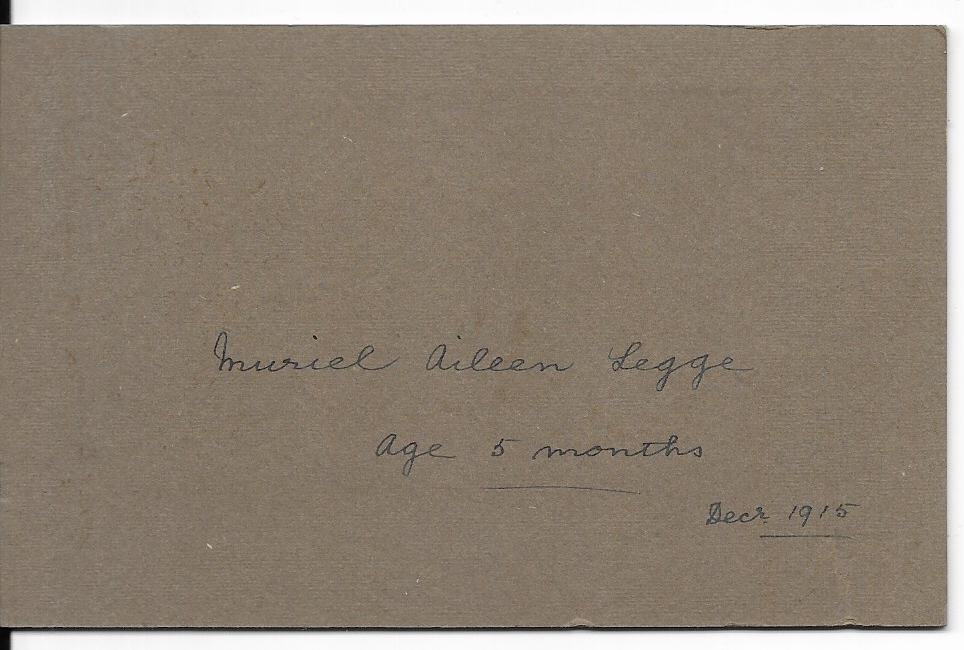 Muriel Aileen Legge
Age 5 months
Decr. 1915